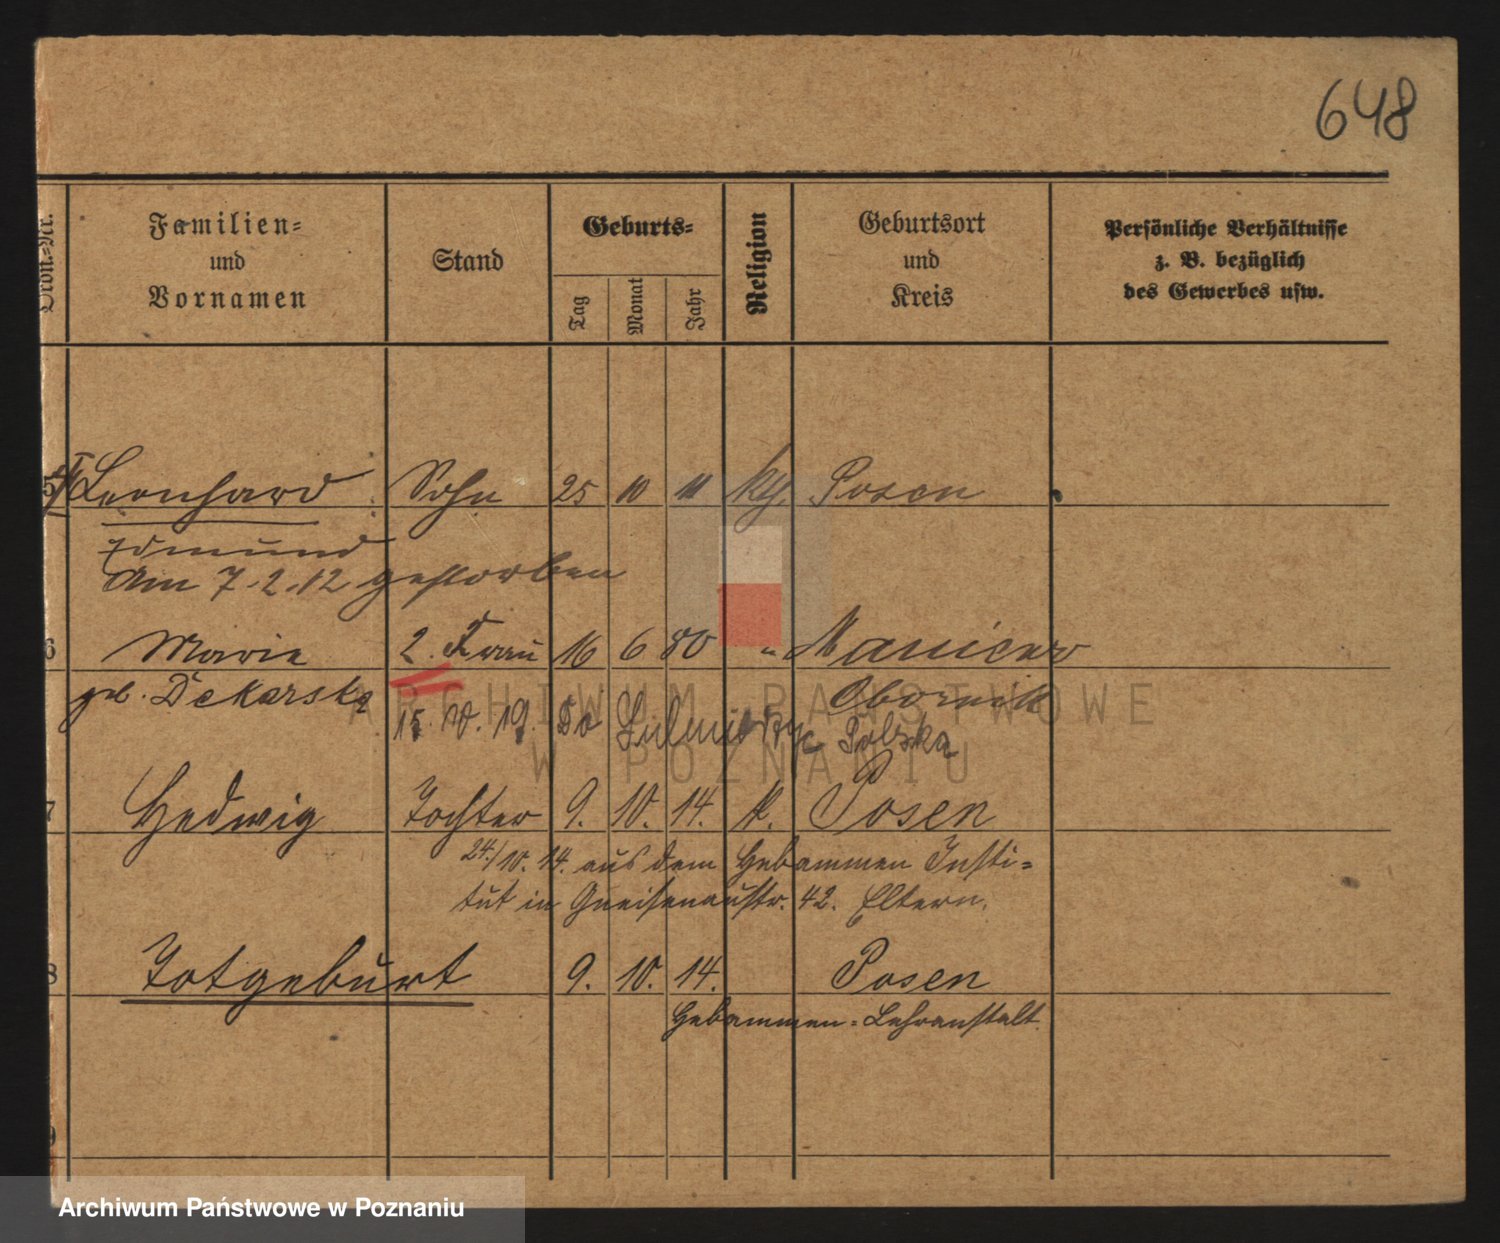 648
Ordn.=Nr.
Familien=
und
Vornamen
Stand
Geburts=
Tag
Monat
Jahr
Religion
Geburtsort
und
Kreis
Persönliche Verhältnisse
z. B. bezüglich
des Gewerbes usw.
5 Leonhard Sohn 25 10 11 kth. Posen
Edmund
Am 7.2.12 gestorben
6 Marie 2. Frau 16 6 80 "
geb. Dekarska Obornik
15. 19. Polska
7 Hedwig Tochter 9. 10. 14. k. Posen
24./10. 14. aus dem Hebammen Insti=
tut in Gneisenaustr. 42. Eltern.
8 Totgeburt 9. 10. 14. Posen
Hebammen=Lehranstalt
9
ARCHIWUM PAŃSTWOWE
W POZNANIU
Archiwum Państwowe w Poznaniu